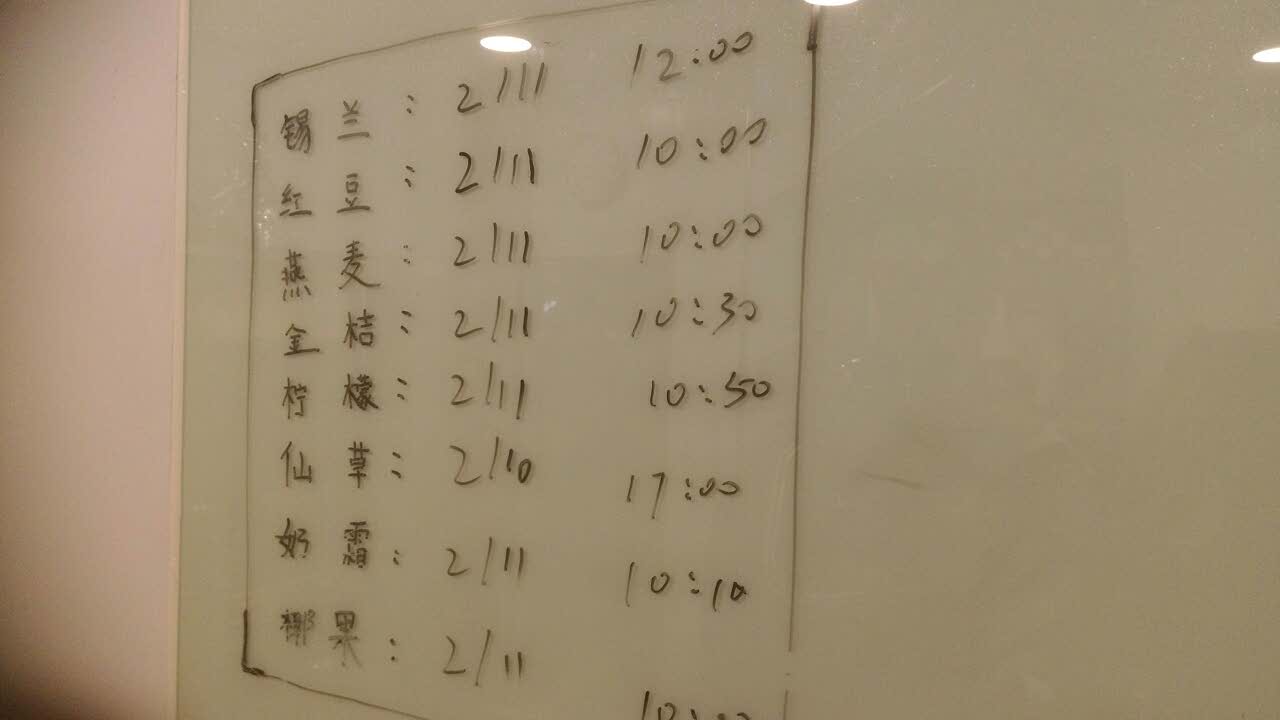 锡兰：2/11 12:00
红豆：2/11 10:00
燕麦：2/11 10:00
金桔：2/11 10:30
柠檬：2/11 10:50
仙草：2/10 17:00
奶霜：2/11 10:10
椰果：2/11 10:00